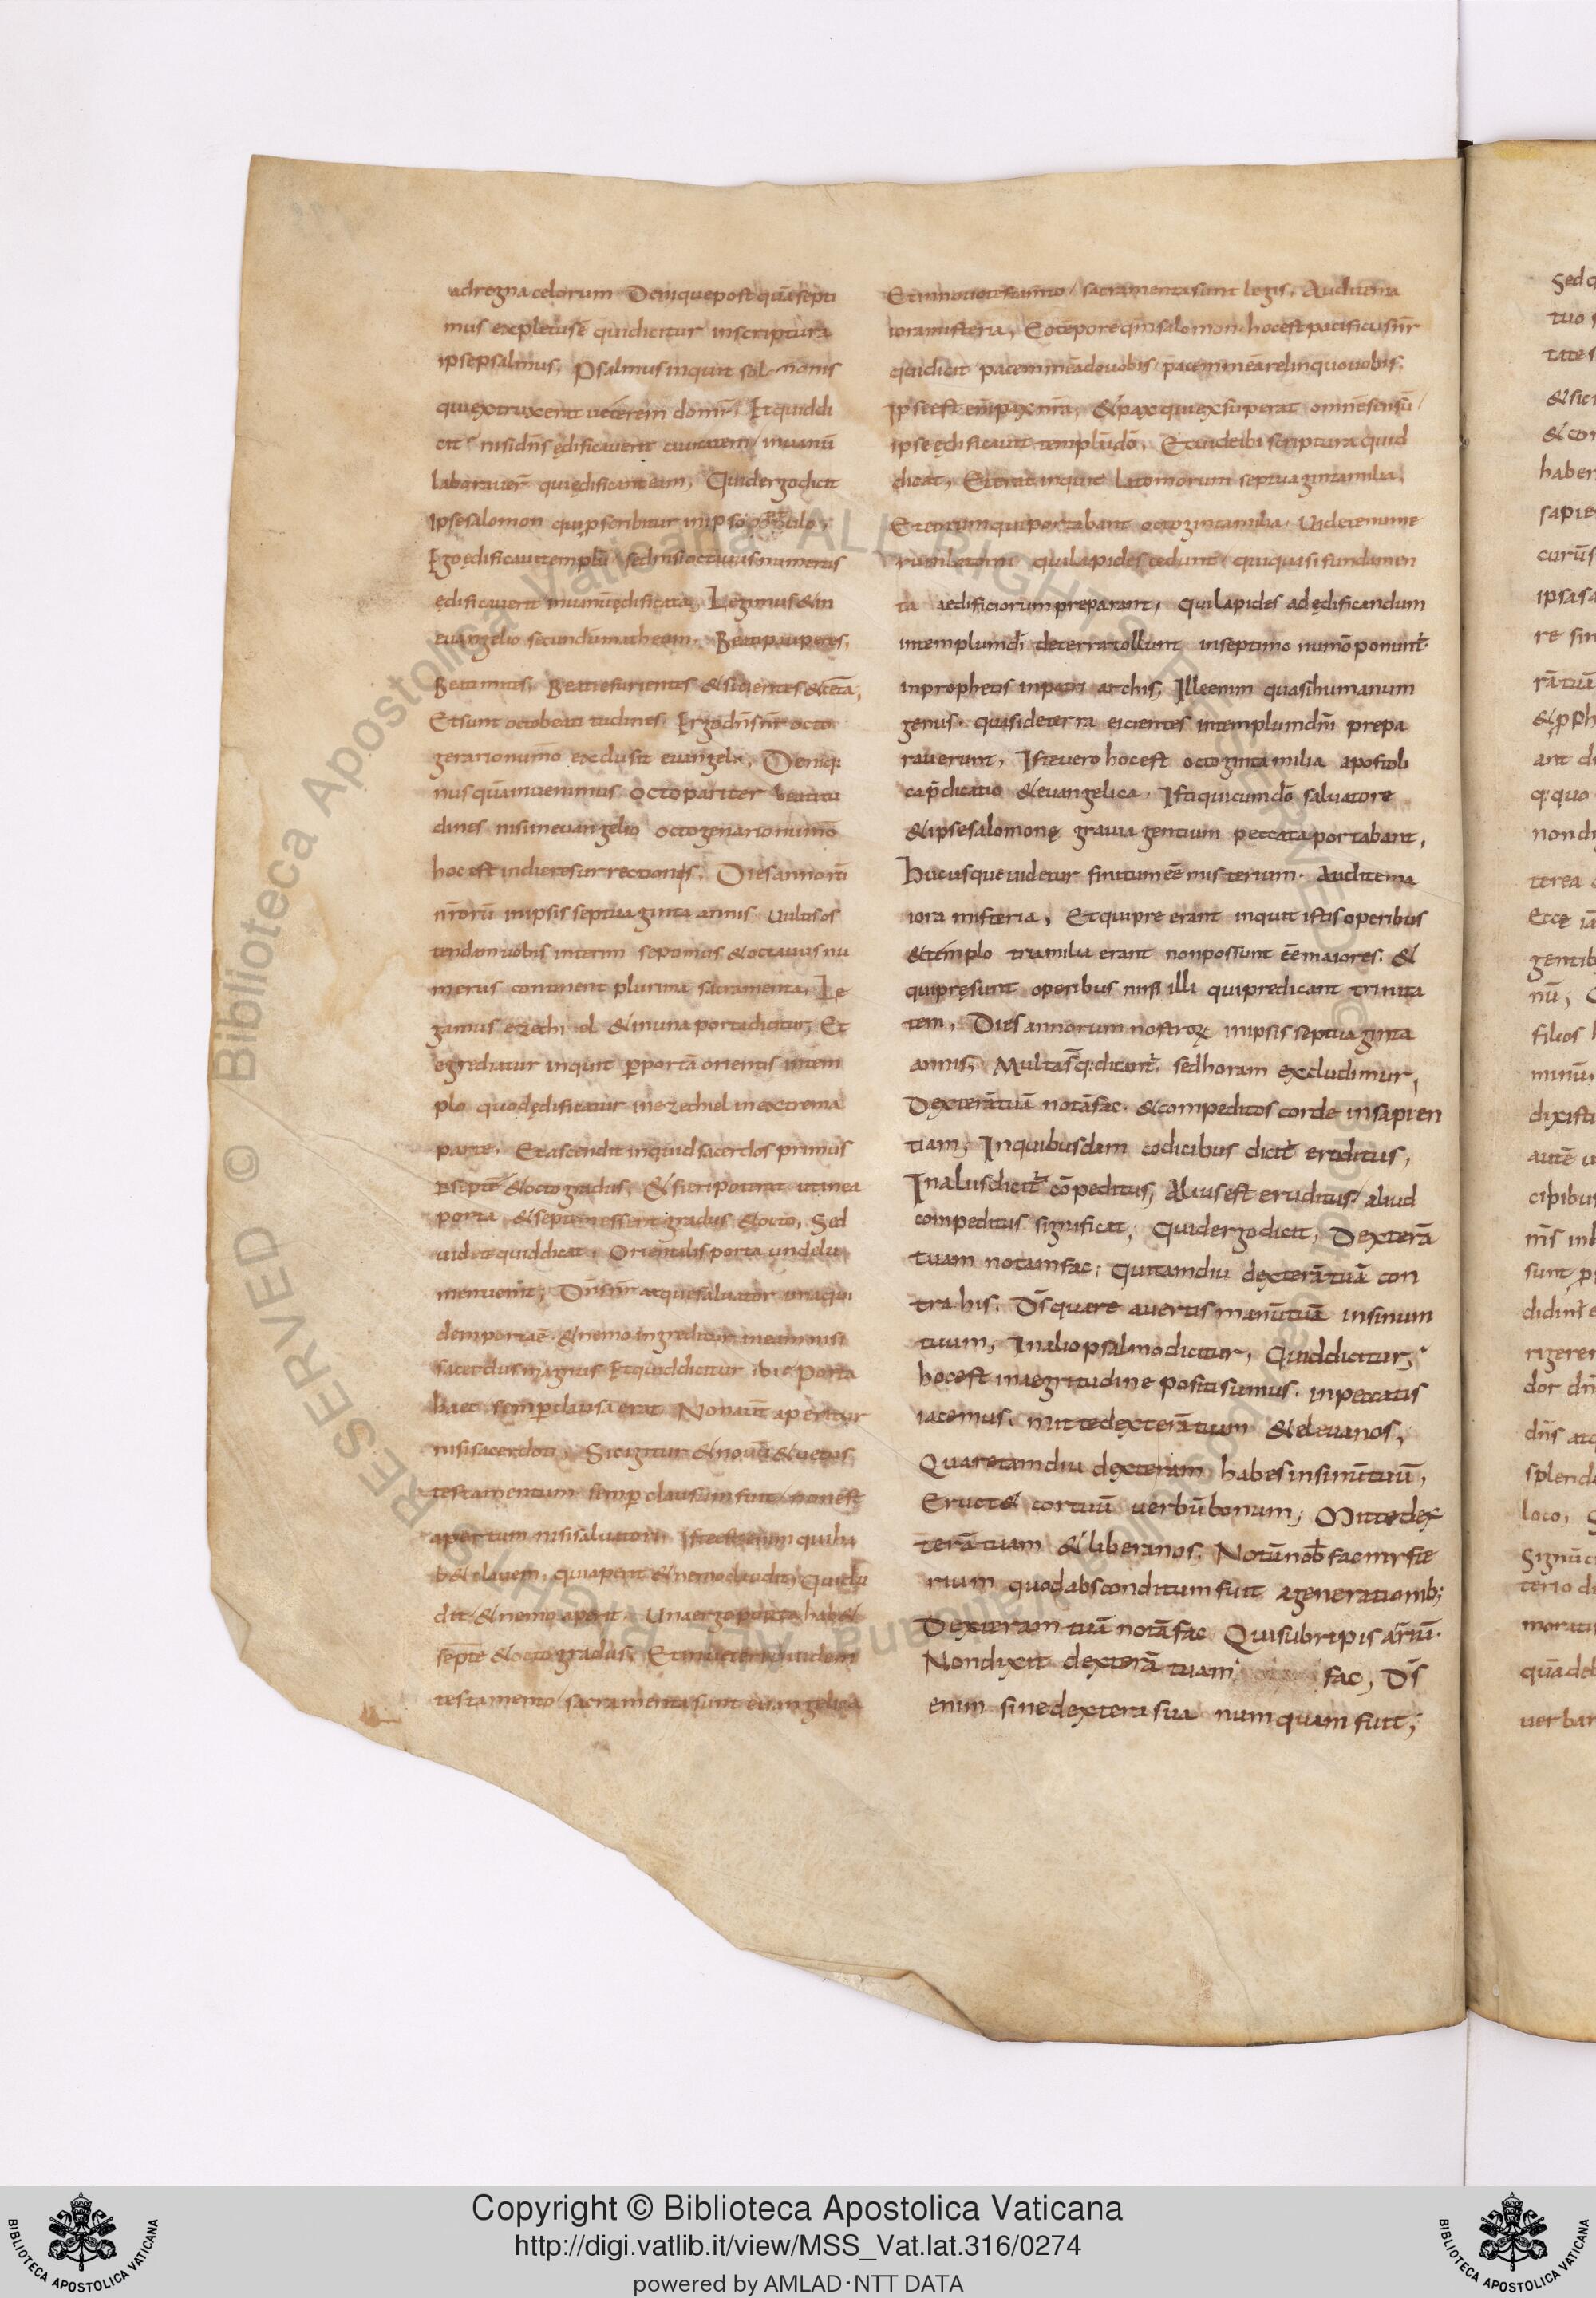 ad regna celorum Denique postquā septi
mus expletus ē quid dicitur in scriptura
ipse psalmus, Psalmus inquit sal nonis
qui extruxerit veterem domū, Et quid di
cit nisi dn̄s ędificaverit civitatem in vanū
laboraver̄ qui ędificant eam, Quid ergo dicit
Ipse salomon qui p scribitur in ipso
Ego ędificavi templū sed nisi octavus numerus
ędificaverit in vanū ędificata, Legimus & in
evangelio secundū matheum. Beati pauperes,
Beati mites, Beati esurientes & sicientes & cet̄a,
Et sunt octo beati tudines. Ergo dn̄s nr̄ octo
gerario num̄o exclusit evangelī, Deniq;
nusquā invenimus octo pariter beatitu
dines nisi in evangelio octogenario num̄o
hoc est in die resurrectionis. Dies annorū
nr̄orū in ipsis septuaginta annis Vultis os
tendam vobis interim septimus & octavus nu
merus continent plurima sacramenta, Le
gamus ezechi el & in una porta dicitur, Et
egreditur inquit p portā orientis in tem
plo quod ędificatur in ezechiel in extrema
parte, Et ascendit inquid sacerdos primus
p septē & octo gradus, & fieri poterat ut in ea
porta & septem essent gradus & octo, Sed
videte quid dicat, Orientalis porta unde lu
men venit; Dn̄s nr̄ atque salvator una qui
dem porta ē & nemo ingreditur in eam nisi
sacerdus magnus Et quid dicitur ibi Porta
haec semp clausa erat Non aut̄ aperitur
nisi sacerdoti, Sic igitur & novū & vetus
testamentum semp clausum fuit non est
apertum nisi salvatori, Iste est enim qui ha
b& clavem, qui aperit & nemo claudit, Qui clu
dit & nemo aperit Una ergo porta hab&
septē & octo gradus, Et in veteri quidem
testamento sacramenta sunt evangelica
Et in novo testam̄to sacramenta sunt legis, Audite ma
iora misteria, Eo tēpore qn̄ salomon hoc est pacificus nr̄
qui dicit pacem meā do vobis pacem meā relinquo vobis.
Ipse est enī pax nr̄a, & pax qui exsuperat omnē sensū
ipse ędificavit templū dō, Et videte ibi scriptura quid
dicat, Et erat inquit latomorum septuaginta milia,
Et eorum qui portabant octoginta milia. Videte nume
rum latomi qui lapides cedunt qui quasi fundamen
ta aedificiorum preparant, qui lapides ad ędificandum
in templum dī de terra tollunt in septimo num̄o ponunt̄.
in prophetis in patri archis, Ille enim quasi humanum
genus. quasi de terra eicientes in templum dn̄i prepa
raverunt, Iste vero hoc est octoginta milia apostoli
ca p̄dicatio & evangelica. Isti qui cum dō salvatore
& ipse salomonę gravia gentium peccata portabant,
Hucusque videtur finitum eē misterium. Audite ma
iora misteria, Et qui pre erant inquit istis operibus
& templo tria milia erant non possunt eē maiores. &
qui pręsunt operibus nisi illi qui predicant trinita
tem, Dies annorum nostroꝝ in ipsis septuaginta
annis, Multa s̄ q; dicant̄. sed horam excludimur,
Dexterā tuā notā fac. & compeditos corde in sapien
tiam; In quibusdam codicibus dicit̄ eruditus,
In aliis dicit̄ cōpeditus, Alius est eruditus aliud
compeditus significat, Quid ergo dicit, Dexterā
tuam notam fac; Qui tamdiu dexterā tuā con
tra his, Ds̄ quare avertis manū tuā in sinum
tuum, In alio psalmo dicitur, Quid dicitur,
hoc est in aegritudine positi sumus. in peccatis
iacemus, mitte dexterā tuam & eleva nos,
Quare tamdiu dexteram habes in sinū tuū,
Eruct& cor tuū verbū bonum; Mitte dex
terā tuam & libera nos. Notū nob̄ fac myste
rium quod absconditum fuit a generationib;
Dexteram tuā notā fac Qui subripis arriū.
Non dixit dexterā tuam fac, Ds̄
enim sine dextera sua num quam fuit;
Copyright © Biblioteca Apostolica Vaticana
http://digi.vatlib.it/view/MSS_Vat.lat.316/0274
powered by AMLAD·NTT DATA